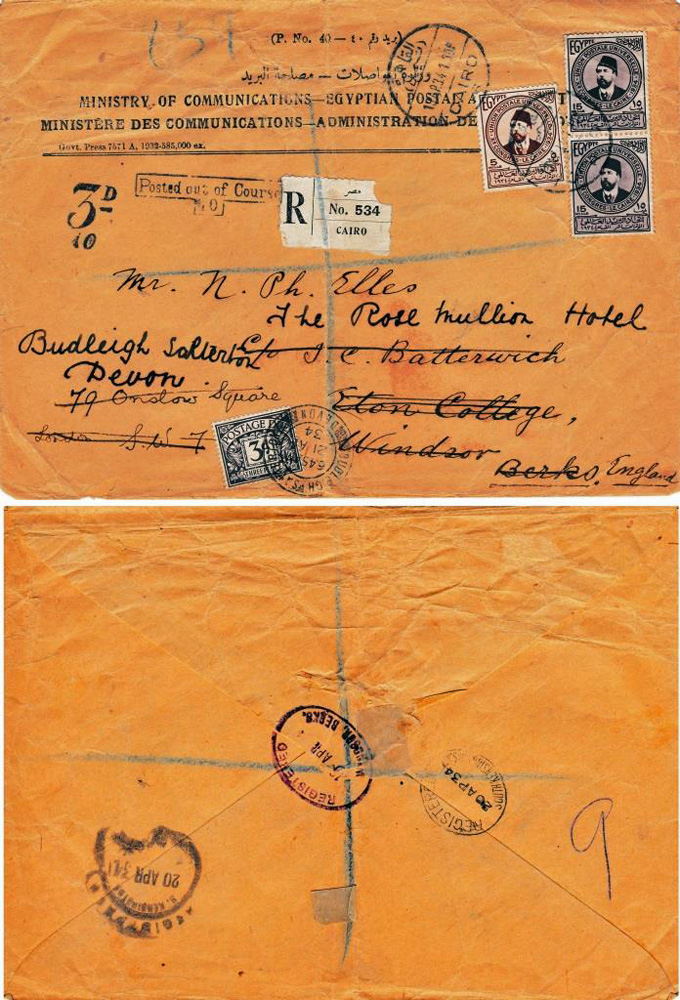 (P. No. 40 — ٤٠ ريد م)
وزارة المواصلات — مصلحة البريد
MINISTRY OF COMMUNICATIONS—EGYPTIAN POSTAL
MINISTÈRE DES COMMUNICATIONS—ADMINISTRATION DE
Govt. Press 7571 A, 1932-585,000 ex.
CAIRO
EGYPTE
5
EGYPTE
15 ١٥
EGYPTE
15 ١٥
3D
10
Posted out of Course
مصر
R No. 534
CAIRO
Mr. N. Ph. Elles
The Rose Mullion Hotel
Budleigh Salterton
C/o J. C. Batterwich
Devon
79 Onslow Square
Eton College,
London S.W 7
Windsor
Berks, England
POSTAGE
3D
21 AP
34
REGISTERED
APR
WINDSOR, BERKS.
REGISTER
20 AP 34
SOUTH
20 APR 34
S. KENSINGTON
9